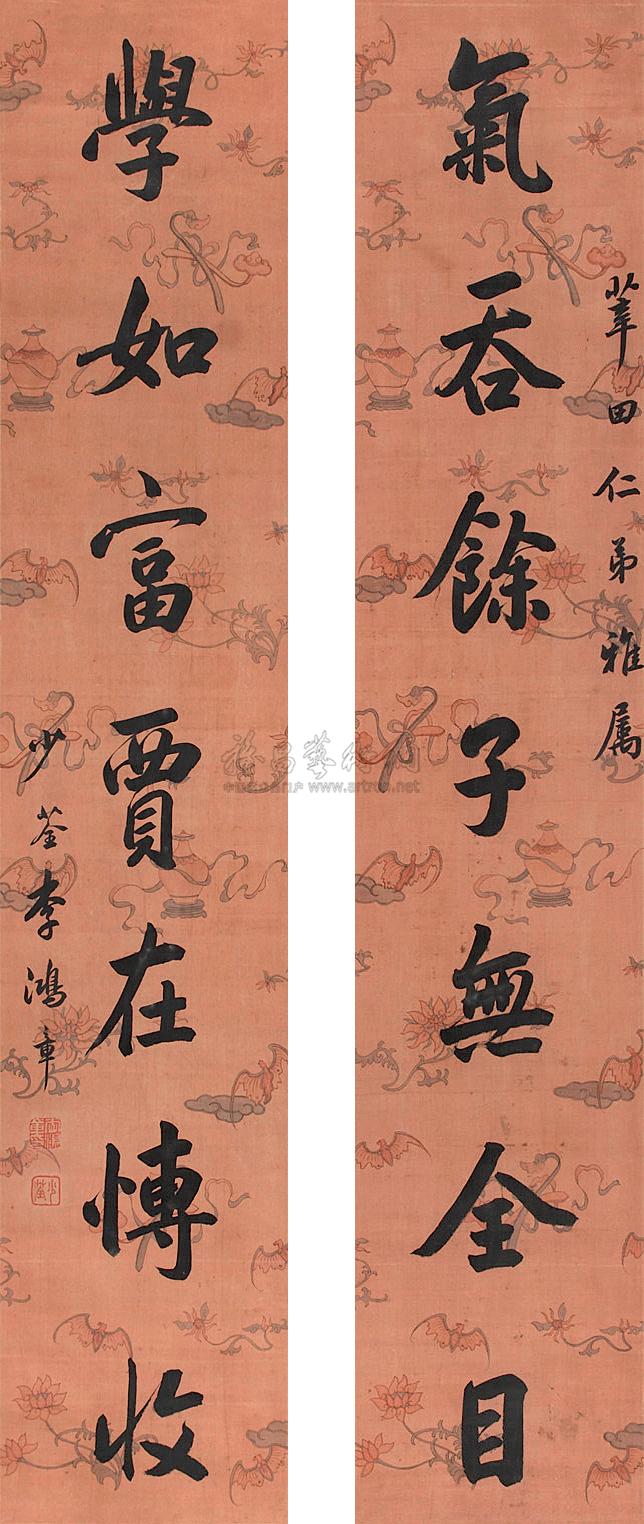 莘田仁弟雅属
氣吞餘子無全目
學如富賈在愽收
少荃李鴻章
少荃
雅昌藝術網
www.artron.net